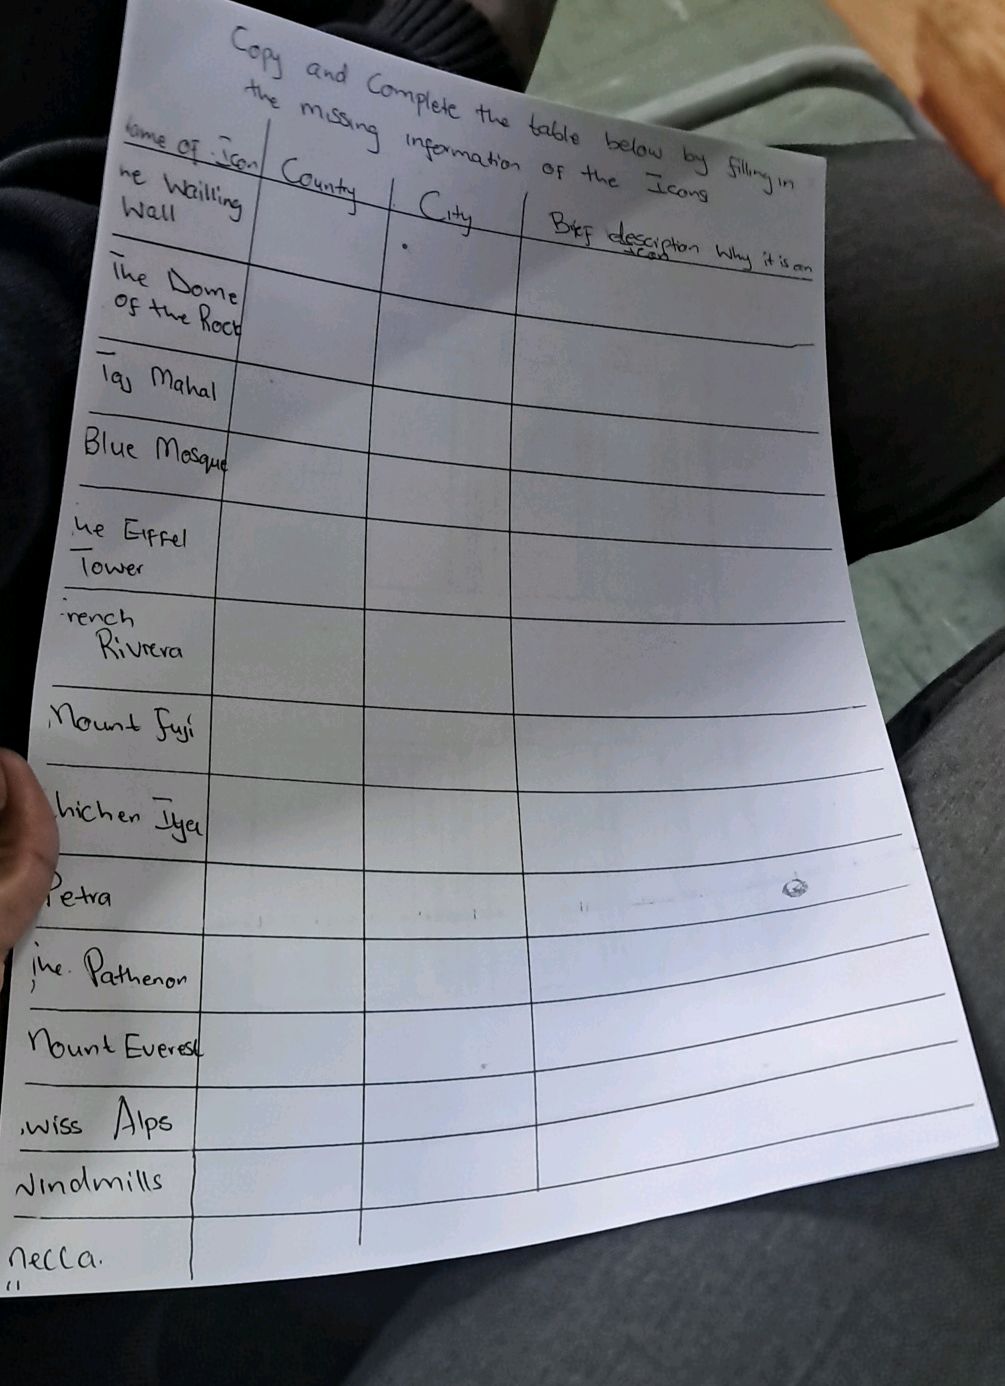 Copy and Complete the table below by filling in
the missing information of the Icons
ame of Icon County City Brief desciption Why it is an
Icon
he Wailling
Wall
The Dome
of the Rock
Taj Mahal
Blue Mosque
he Eiffel
Tower
rench
Rivrera
Mount Fuji
hichen Iya
Petra
The Pathenon
Mount Everest
wiss Alps
Windmills
Mecca.